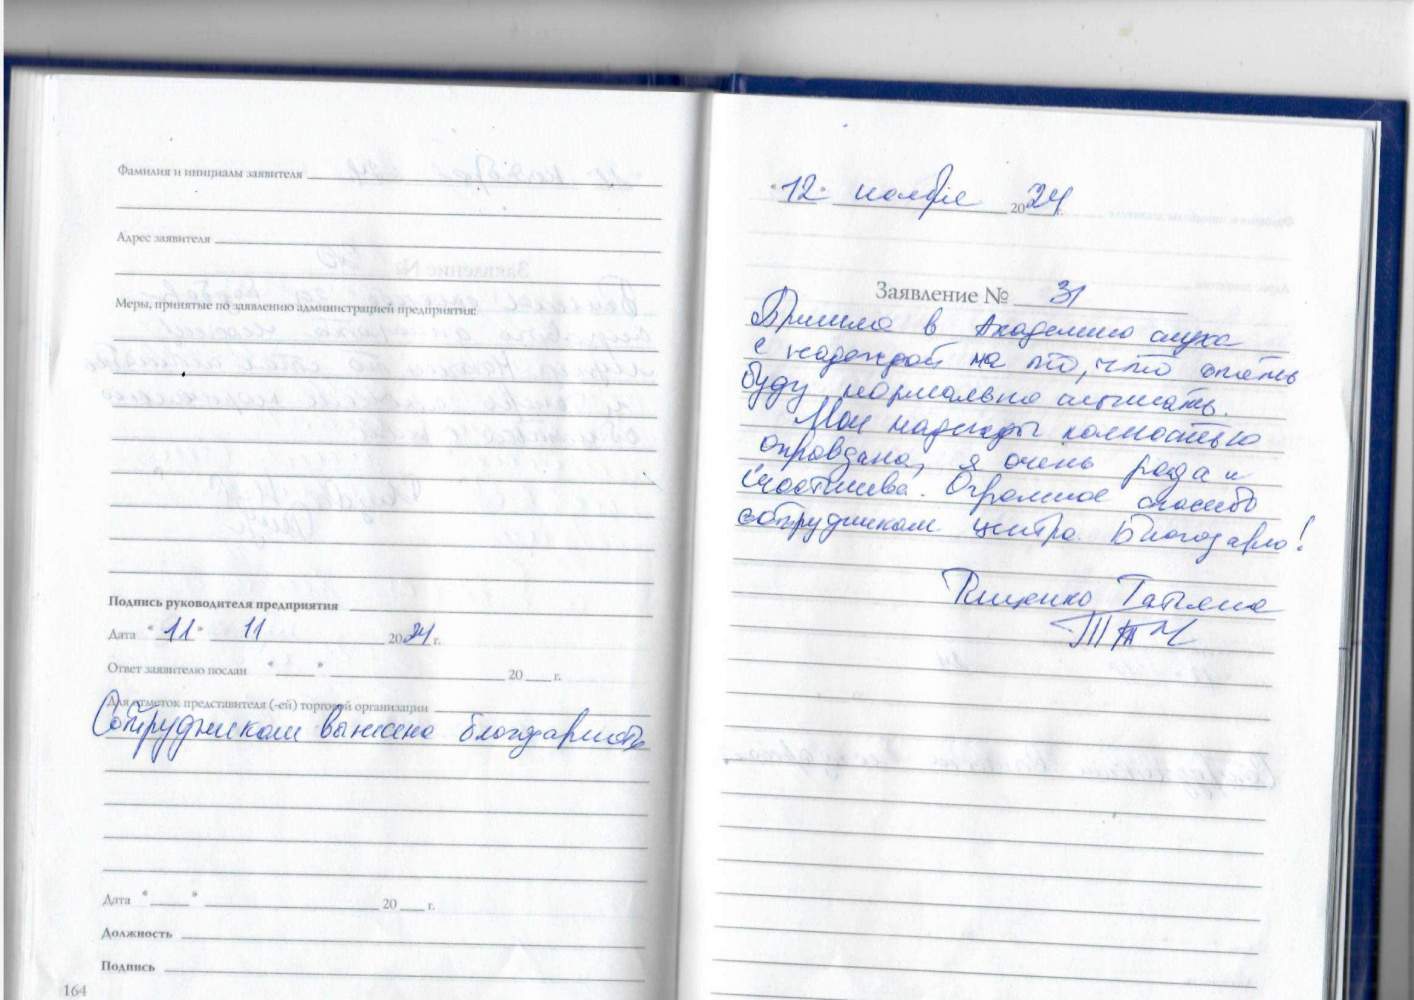 Фамилия и инициалы заявителя
Адрес заявителя
Меры, принятые по заявлению администрацией предприятия:
Подпись руководителя предприятия
Дата "11" 11 2024 г.
Ответ заявителю послан " " 20 г.
Для отметок представителя (-ей) торговой организации
Сотрудникам вынесена благодарность
Дата " " 20 г.
Должность
Подпись
164
"12" ноября 2024 г.
Заявление № 31
Пришла в Академию слуха
с надеждой на то, что опять
буду нормально слышать.
Мои надежды полностью
оправданы, я очень рада и
счастлива. Огромное спасибо
сотрудникам центра. Благодарю!
Татьяна